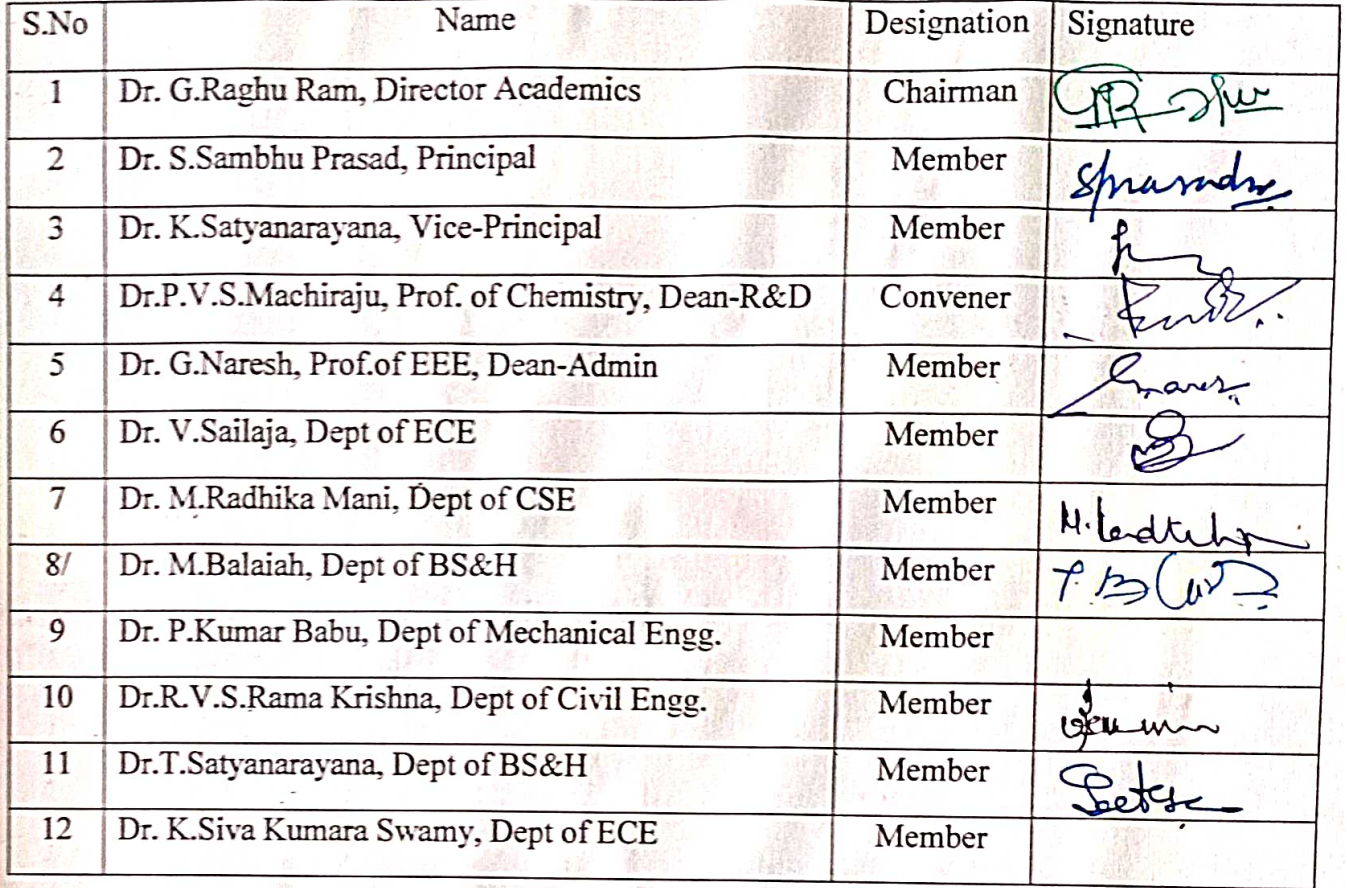 S.No Name Designation Signature
1 Dr. G.Raghu Ram, Director Academics Chairman
2 Dr. S.Sambhu Prasad, Principal Member Sprasad
3 Dr. K.Satyanarayana, Vice-Principal Member
4 Dr.P.V.S.Machiraju, Prof. of Chemistry, Dean-R&D Convener
5 Dr. G.Naresh, Prof.of EEE, Dean-Admin Member
6 Dr. V.Sailaja, Dept of ECE Member
7 Dr. M.Radhika Mani, Dept of CSE Member
8/ Dr. M.Balaiah, Dept of BS&H Member
9 Dr. P.Kumar Babu, Dept of Mechanical Engg. Member
10 Dr.R.V.S.Rama Krishna, Dept of Civil Engg. Member
11 Dr.T.Satyanarayana, Dept of BS&H Member
12 Dr. K.Siva Kumara Swamy, Dept of ECE Member